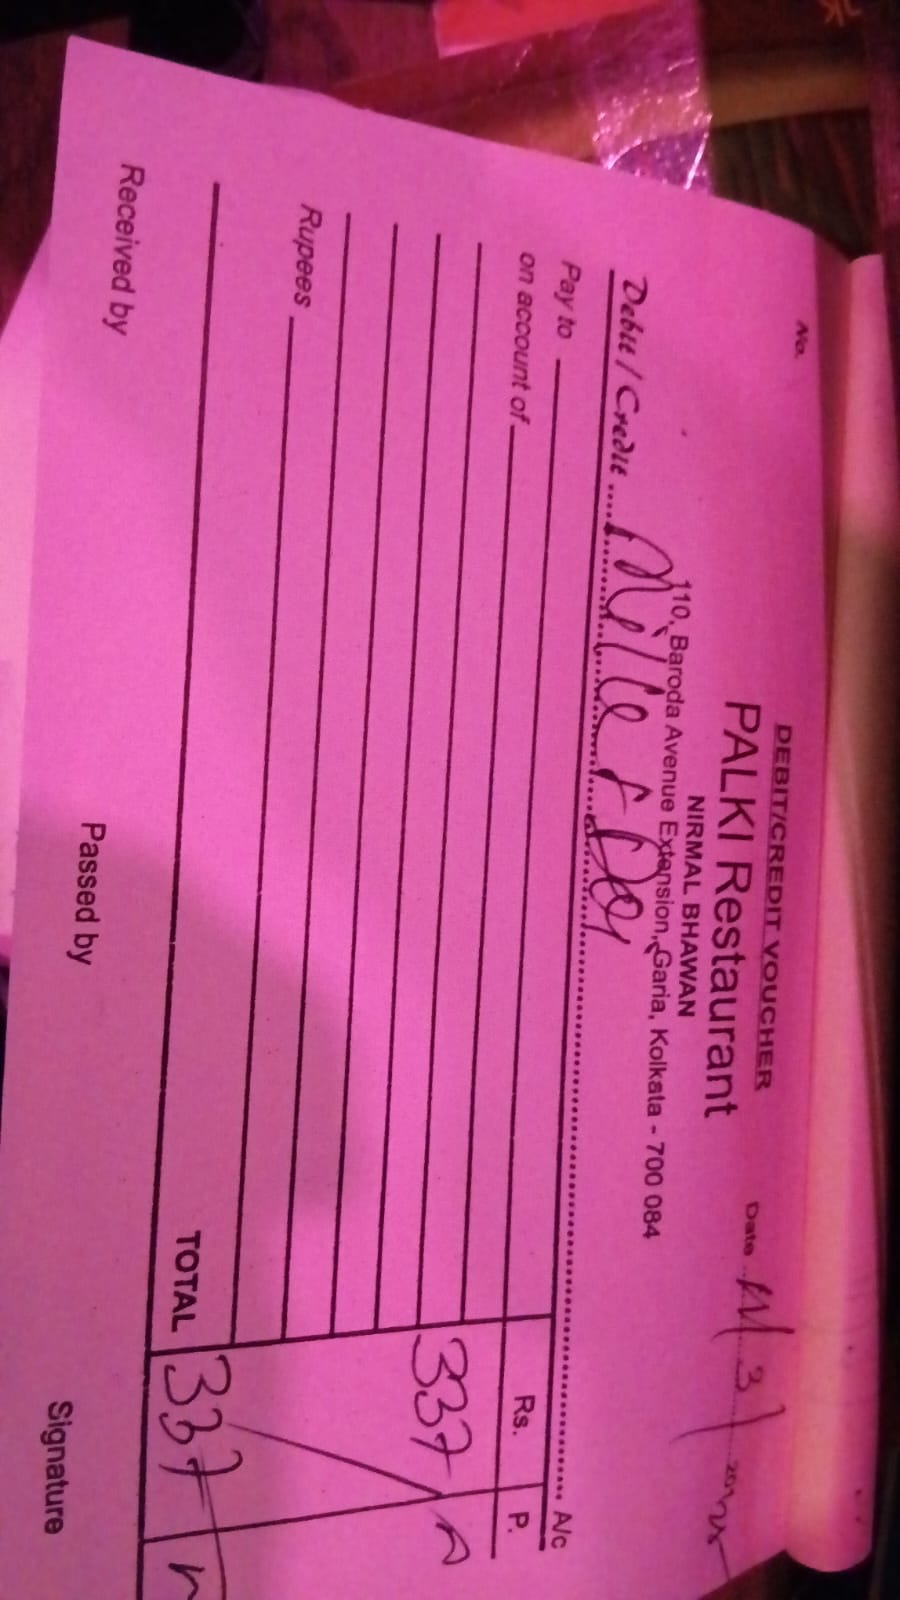 DEBIT/CREDIT VOUCHER
No.
PALKI Restaurant
Date
NIRMAL BHAWAN
110, Baroda Avenue Extension, Garia, Kolkata - 700 084
Debit / Credit A/c
Pay to Rs. P.
on account of
337
Rupees
TOTAL 337
Received by Passed by Signature